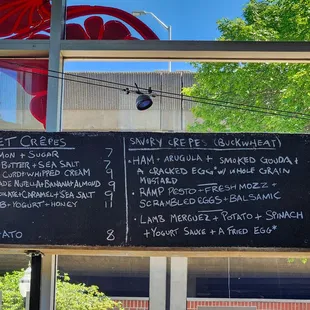 ET CRÊPES
MON + SUGAR 7
BUTTER + SEA SALT 7
CURD + WHIPPED CREAM 9
ADE NUTELLA + BANANA + ALMOND 9
OLATE + CARAMEL + SEA SALT 9
B + YOGURT + HONEY 11
ATO 8
SAVORY CREPES (BUCKWHEAT)
• HAM + ARUGULA + SMOKED GOUDA +
A CRACKED EGG* W/ WHOLE GRAIN
MUSTARD
• RAMP PESTO + FRESH MOZZ +
SCRAMBLED EGGS + BALSAMIC
• LAMB MERGUEZ + POTATO + SPINACH
+ YOGURT SAUCE + A FRIED EGG*